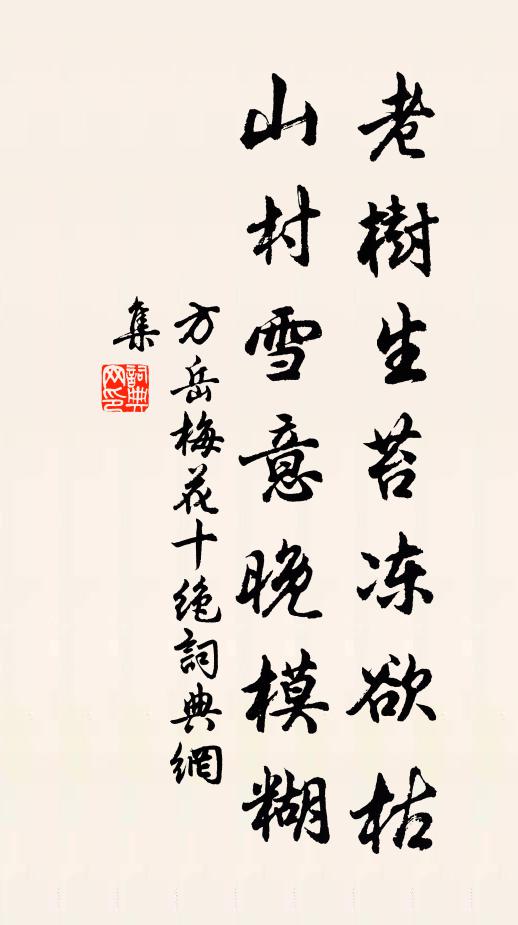 老樹生苔冻欲枯
山村雪意晚模糊
方岳梅花十绝詞典網
集
詞典
网印